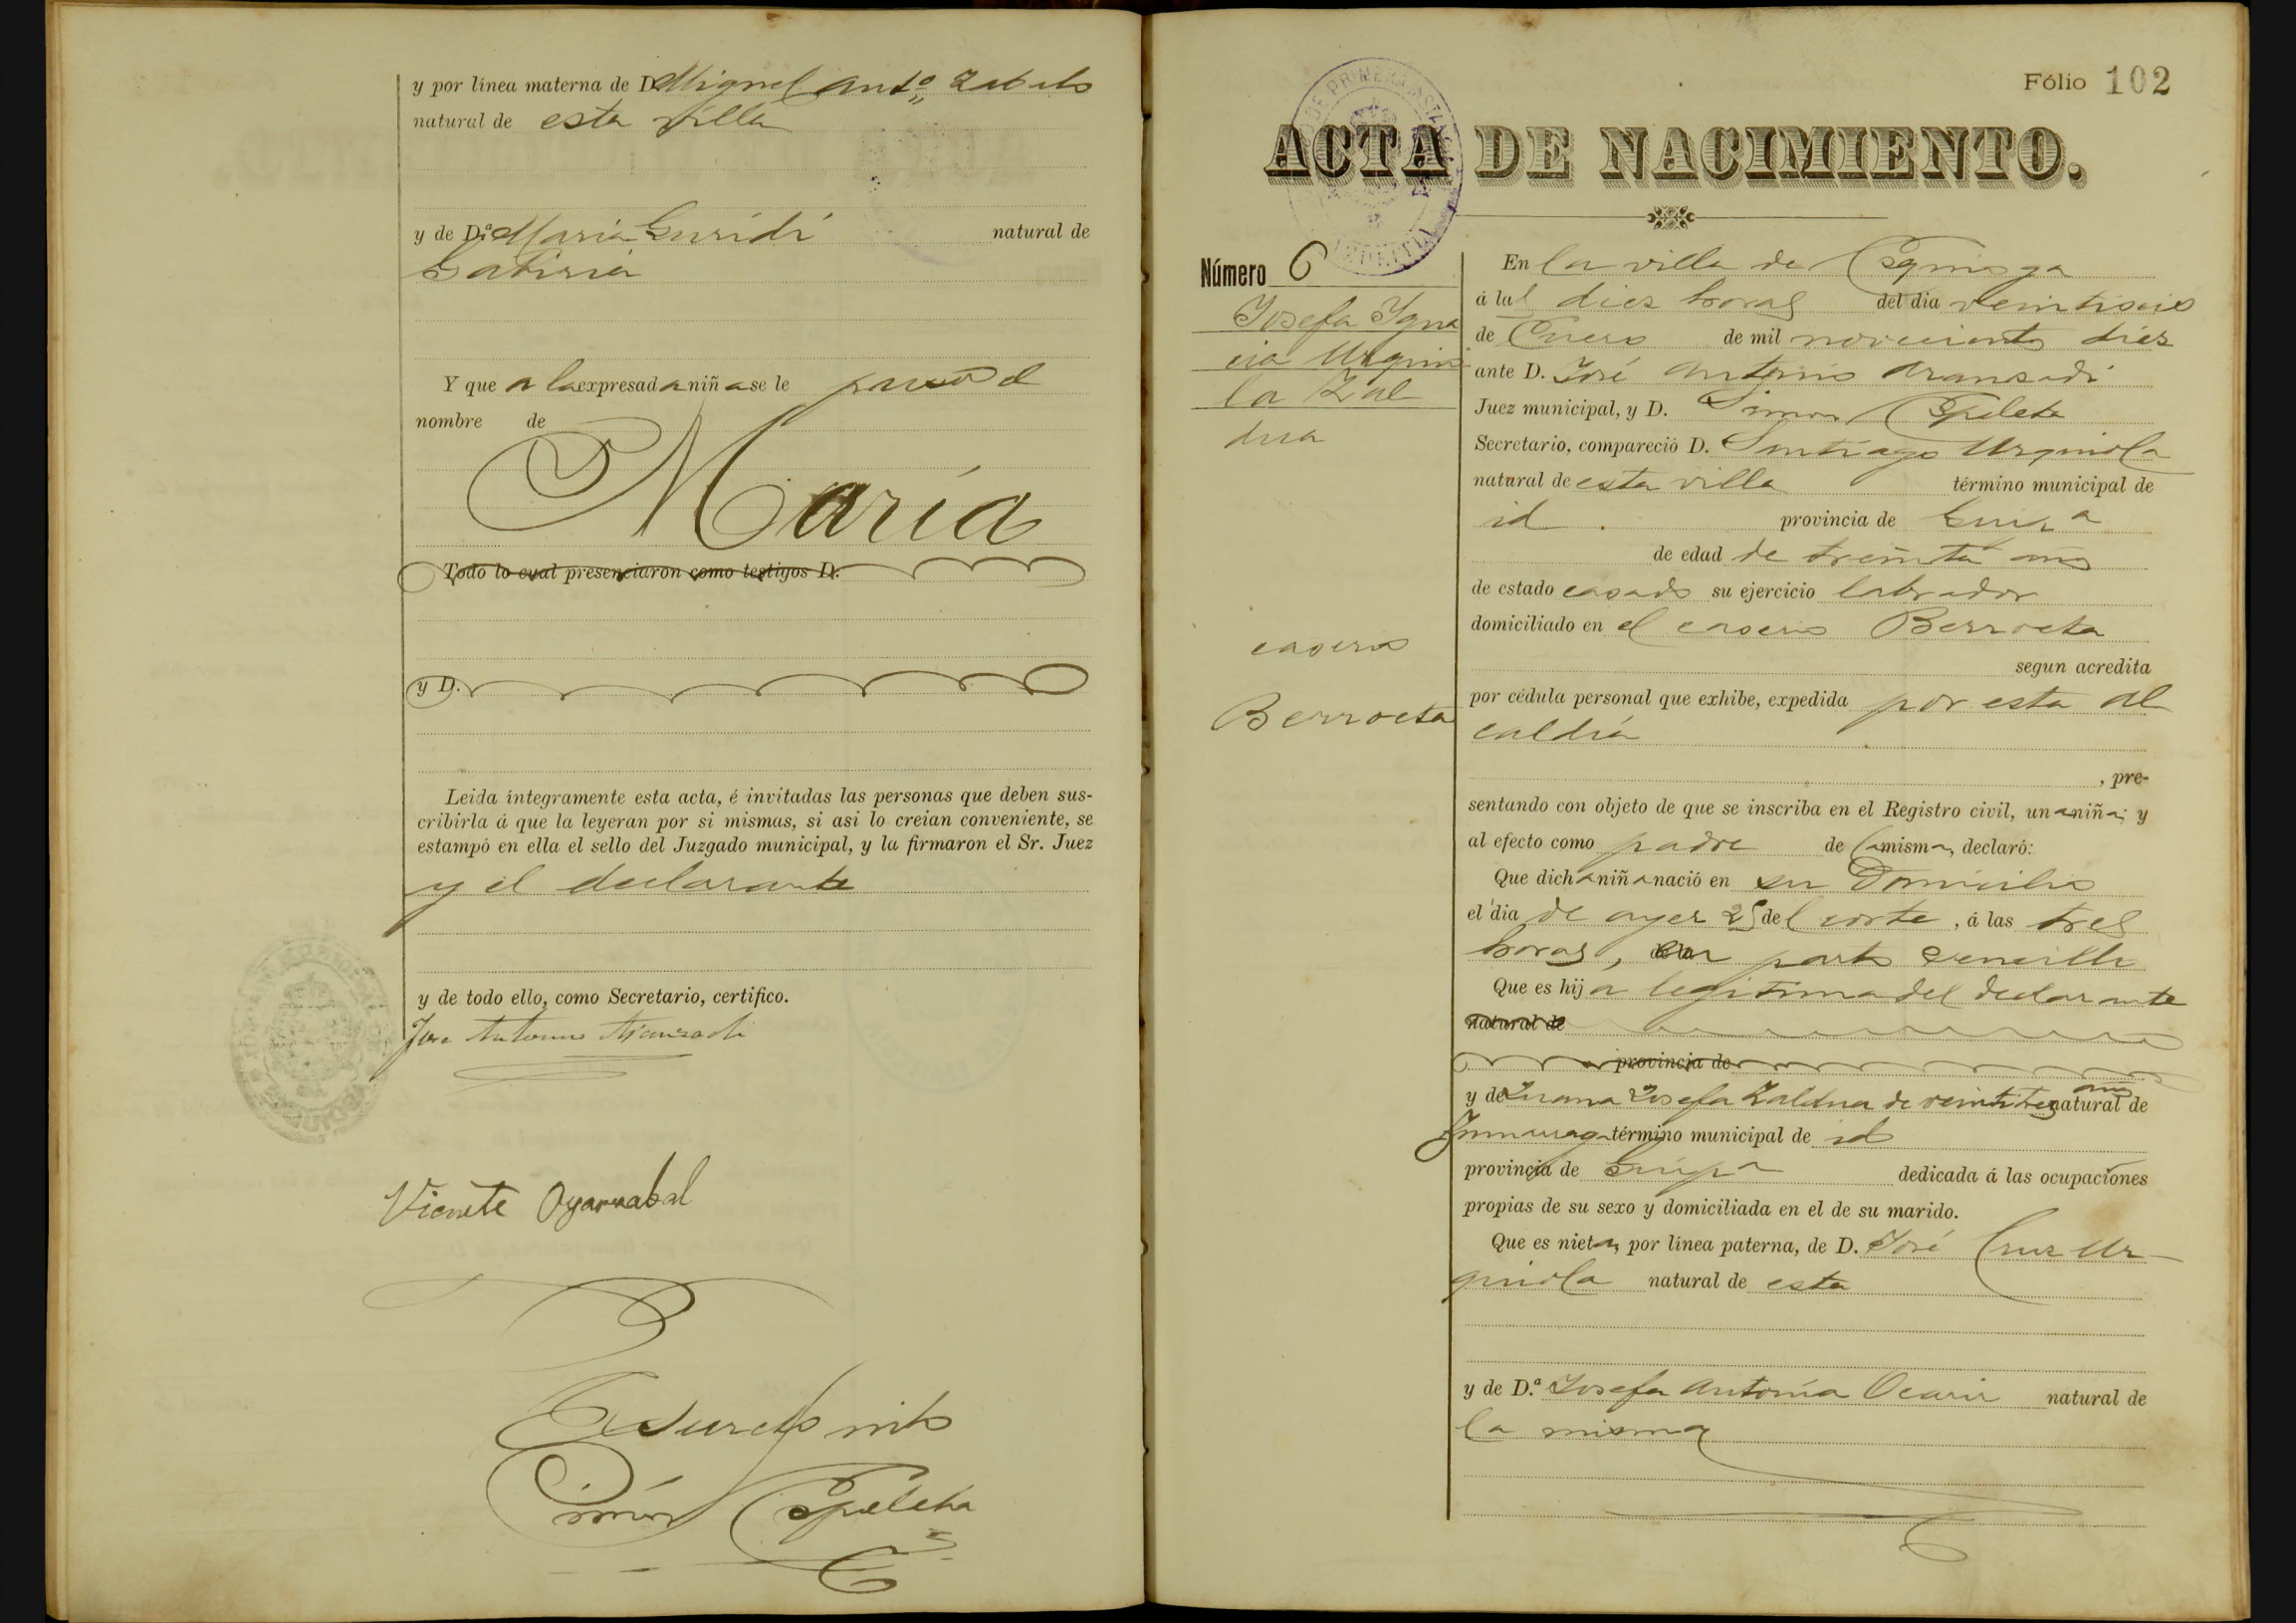 y por línea materna de D. Miguel Antº Zabalo
natural de esta villa
y de D.ª Maria Guridi natural de
Gaviria
Y que a la expresada niña se le puso el
nombre de
María
Todo lo cual presenciaron como testigos D.
y D.
Leida íntegramente esta acta, é invitadas las personas que deben sus-
cribirla á que la leyeran por si mismas, si asi lo creian conveniente, se
estampó en ella el sello del Juzgado municipal, y la firmaron el Sr. Juez
y el declarante
y de todo ello, como Secretario, certifico.
Jose Antonio Aranzadi
Vicente Oyarzabal
Simón Espeleta
Fólio 102
ACTA DE NACIMIENTO.
Número 6
Josefa Ygna
cia Urquio
la Zal
dua
caserio
Berroeta
En la villa de Ezquioga
á las diez horas del dia veintiseis
de Enero de mil novecientos diez
ante D. José Antonio Aranzadi
Juez municipal, y D. Simon Espeleta
Secretario, compareció D. Santiago Urquiola
natural de esta villa término municipal de
id. provincia de Guipª
de edad de treinta años
de estado casado su ejercicio labrador
domiciliado en el caserio Berroeta
segun acredita
por cédula personal que exhibe, expedida por esta Al
caldía
, pre-
sentando con objeto de que se inscriba en el Registro civil, una niña; y
al efecto como padre de la misma, declaró:
Que dicha niña nació en su domicilio
el dia de ayer 25 del corte, á las tres
horas, en parto sencillo
Que es hija legitima del declarante
natural de
provincia de
y de Juana Josefa Zaldua de veintitres años natural de
Zumarraga término municipal de id
provincia de Guipª dedicada á las ocupaciones
propias de su sexo y domiciliada en el de su marido.
Que es nieta, por línea paterna, de D. José Cruz Ur-
quiola natural de esta
y de D.ª Josefa Antonia Ocariz natural de
la misma